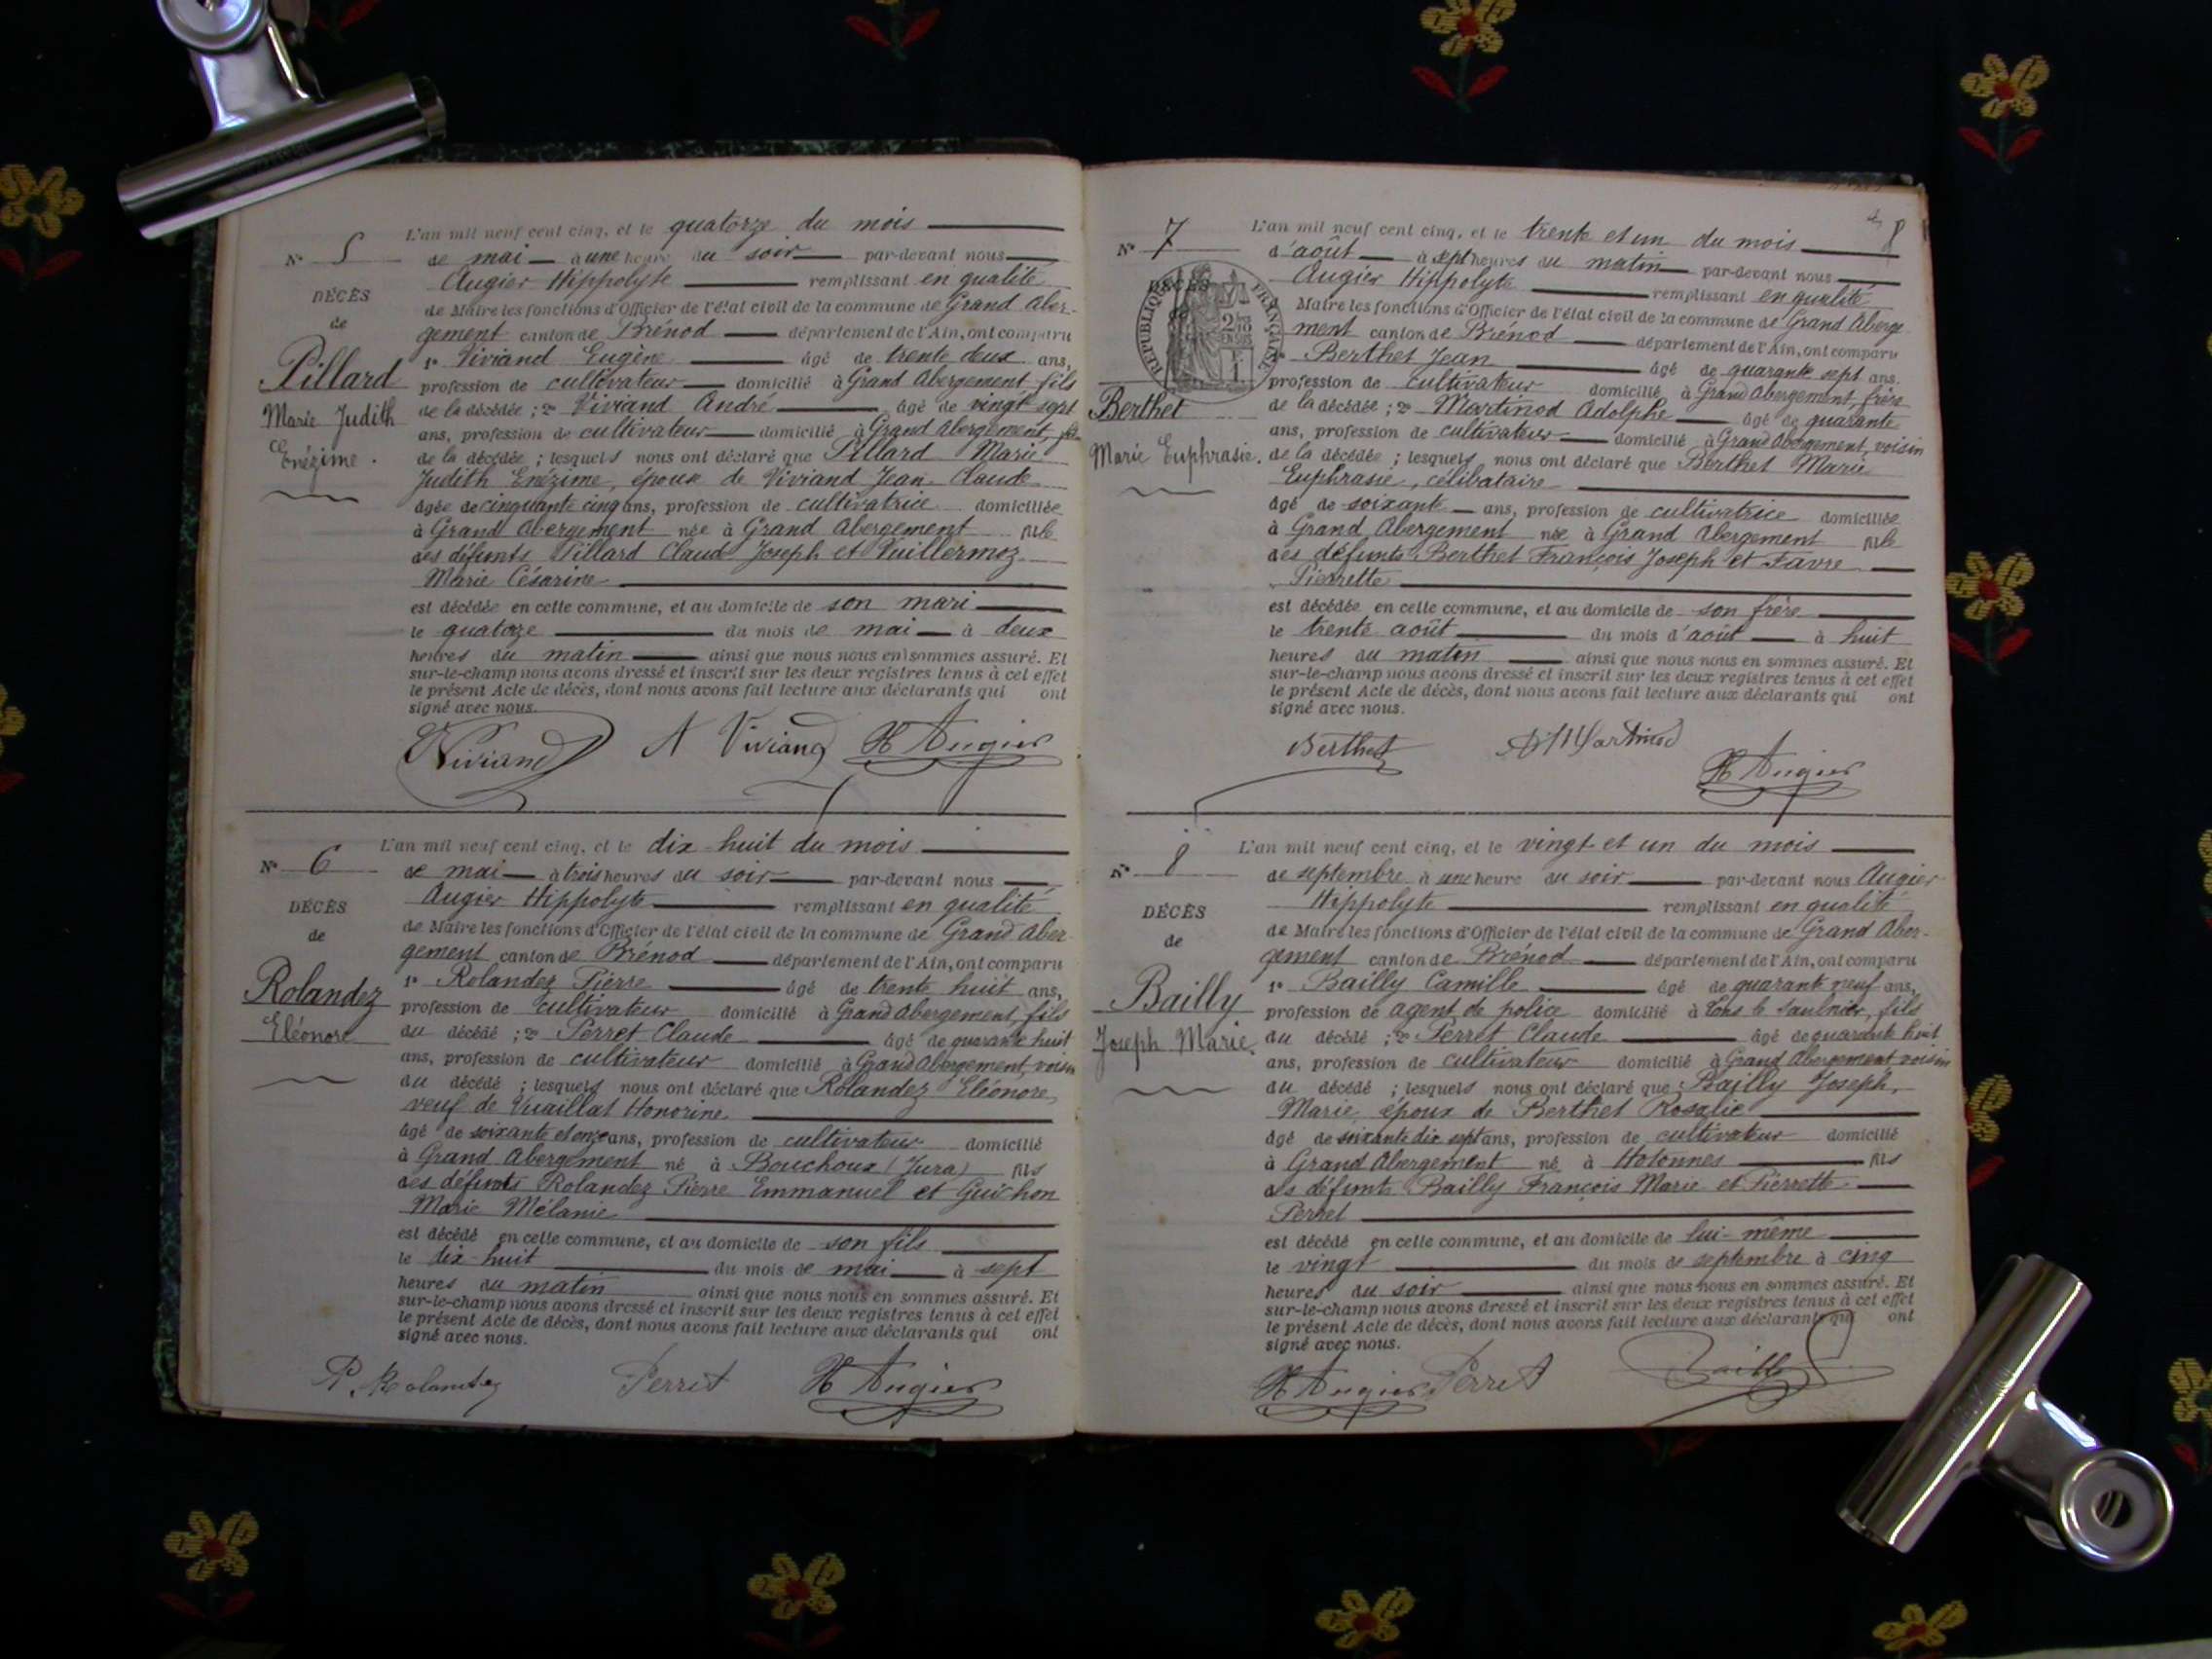 N° 5
DÉCÈS
de
Pillard
Marie Judith
Enézime.
L'an mil neuf cent cinq, et le quatorze du mois
de mai à une heure du soir par-devant nous
Augier Hippolyte remplissant en qualité
de Maire les fonctions d'Officier de l'état civil de la commune de Grand Aber-
gement canton de Brénod département de l'Ain, ont comparu
1° Viviand Eugène âgé de trente deux ans,
profession de cultivateur domicilié à Grand Abergement, fils
de la décédée ; 2° Viviand André âgé de vingt sept
ans, profession de cultivateur domicilié à Grand Abergement,
de la décédée ; lesquels nous ont déclaré que Pillard Marie
Judith Enézime, épouse de Viviand Jean-Claude
âgée de cinquante cinq ans, profession de cultivatrice domiciliée
à Grand Abergement née à Grand Abergement fille
des défunts Pillard Claude Joseph et Guillermoz
Marie Césarine
est décédée en cette commune, et au domicile de son mari
le quatorze du mois de mai à deux
heures du matin ainsi que nous nous en sommes assuré. Et
sur-le-champ nous avons dressé et inscrit sur les deux registres tenus à cet effet
le présent Acte de décès, dont nous avons fait lecture aux déclarants qui ont
signé avec nous.
E Viviand A Viviand H Augier
N° 6
DÉCÈS
de
Rolandez
Eléonore
L'an mil neuf cent cinq, et le dix-huit du mois
de mai à trois heures du soir par-devant nous
Augier Hippolyte remplissant en qualité
de Maire les fonctions d'Officier de l'état civil de la commune de Grand Aber-
gement canton de Brénod département de l'Ain, ont comparu
1° Rolandez Pierre âgé de trente huit ans,
profession de cultivateur domicilié à Grand Abergement, fils
du décédé ; 2° Perret Claude âgé de quarante huit
ans, profession de cultivateur domicilié à Grand Abergement, voisin
du décédé ; lesquels nous ont déclaré que Rolandez Eléonore,
veuf de Vuaillat Honorine
âgé de soixante et onze ans, profession de cultivateur domicilié
à Grand Abergement né à Bouchoux (Jura) fils
des défunts Rolandez Pierre Emmanuel et Guichon
Marie Mélanie
est décédé en cette commune, et au domicile de son fils
le dix-huit du mois de mai à sept
heures du matin ainsi que nous nous en sommes assuré. Et
sur-le-champ nous avons dressé et inscrit sur les deux registres tenus à cet effet
le présent Acte de décès, dont nous avons fait lecture aux déclarants qui ont
signé avec nous.
P. Rolandez Perret H Augier
8
N° 7
DÉCÈS
RÉPUBLIQUE FRANÇAISE
2/10 EN SUS
Berthet
Marie Euphrasie.
L'an mil neuf cent cinq, et le trente et un du mois
d'août à sept heures du matin par-devant nous
Augier Hippolyte remplissant en qualité
Maire les fonctions d'Officier de l'état civil de la commune de Grand Aberge-
ment canton de Brénod département de l'Ain, ont comparu
Berthet Jean âgé de quarante sept ans.
profession de cultivateur domicilié à Grand Abergement, frère
de la décédée ; 2° Martinod Adolphe âgé de quarante
ans, profession de cultivateur domicilié à Grand Abergement, voisin
de la décédée ; lesquels nous ont déclaré que Berthet Marie
Euphrasie, célibataire
âgé de soixante ans, profession de cultivatrice domiciliée
à Grand Abergement née à Grand Abergement fille
des défunts Berthet François Joseph et Favre
Pierrette
est décédée en cette commune, et au domicile de son frère
le trente août du mois d'août à huit
heures du matin ainsi que nous nous en sommes assuré. Et
sur-le-champ nous avons dressé et inscrit sur les deux registres tenus à cet effet
le présent Acte de décès, dont nous avons fait lecture aux déclarants qui ont
signé avec nous.
Berthet A Martinod
H Augier
N° 8
DÉCÈS
de
Bailly
Joseph Marie.
L'an mil neuf cent cinq, et le vingt et un du mois
de septembre à une heure du soir par-devant nous Augier
Hippolyte remplissant en qualité
de Maire les fonctions d'Officier de l'état civil de la commune de Grand Aber-
gement canton de Brénod département de l'Ain, ont comparu
1° Bailly Camille âgé de quarante neuf ans,
profession de agent de police domicilié à Lons le Saulnier, fils
du décédé ; 2° Perret Claude âgé de quarante huit
ans, profession de cultivateur domicilié à Grand Abergement voisin
du décédé ; lesquels nous ont déclaré que Bailly Joseph,
Marie, époux de Berthet Rosalie
âgé de soixante dix sept ans, profession de cultivateur domicilié
à Grand Abergement né à Hotonnes fils
des défunts Bailly François Marie et Pierrette
Perret
est décédé en cette commune, et au domicile de lui-même
le vingt du mois de septembre à cinq
heures du soir ainsi que nous nous en sommes assuré. Et
sur-le-champ nous avons dressé et inscrit sur les deux registres tenus à cet effet
le présent Acte de décès, dont nous avons fait lecture aux déclarants qui ont
signé avec nous.
H Augier Perret Bailly